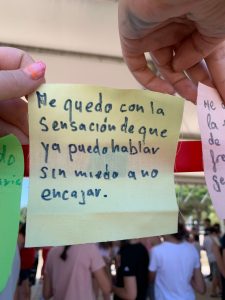 Me quedo con la
sensación de que
ya puedo hablar
sin miedo a no
encajar.